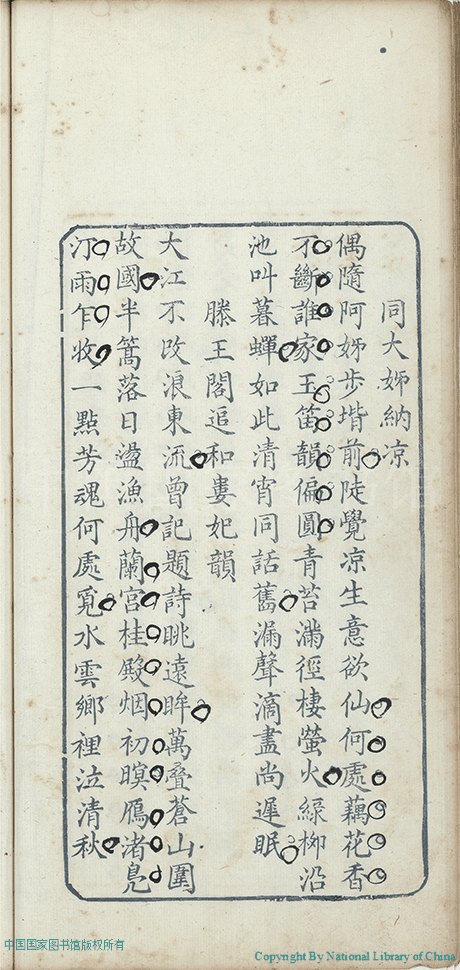 同大姊納凉
偶隨阿姊步堦前陡覺凉生意欲仙何處藕花香
不斷誰家玉笛韻偏圓青苔滿徑棲螢火綠柳沿
池叫暮蟬如此清宵同話舊漏聲滴盡尚遲眠
滕王閣追和婁妃韻
大江不改浪東流曾記題詩眺遠眸萬疊蒼山圍
故國半篙落日盪漁舟蘭宮桂殿烟初暝鴈渚凫
汀雨乍收一點芳魂何處覓水雲鄉裡泣清秋
中国国家图书馆版权所有
Copyright By National Library of China